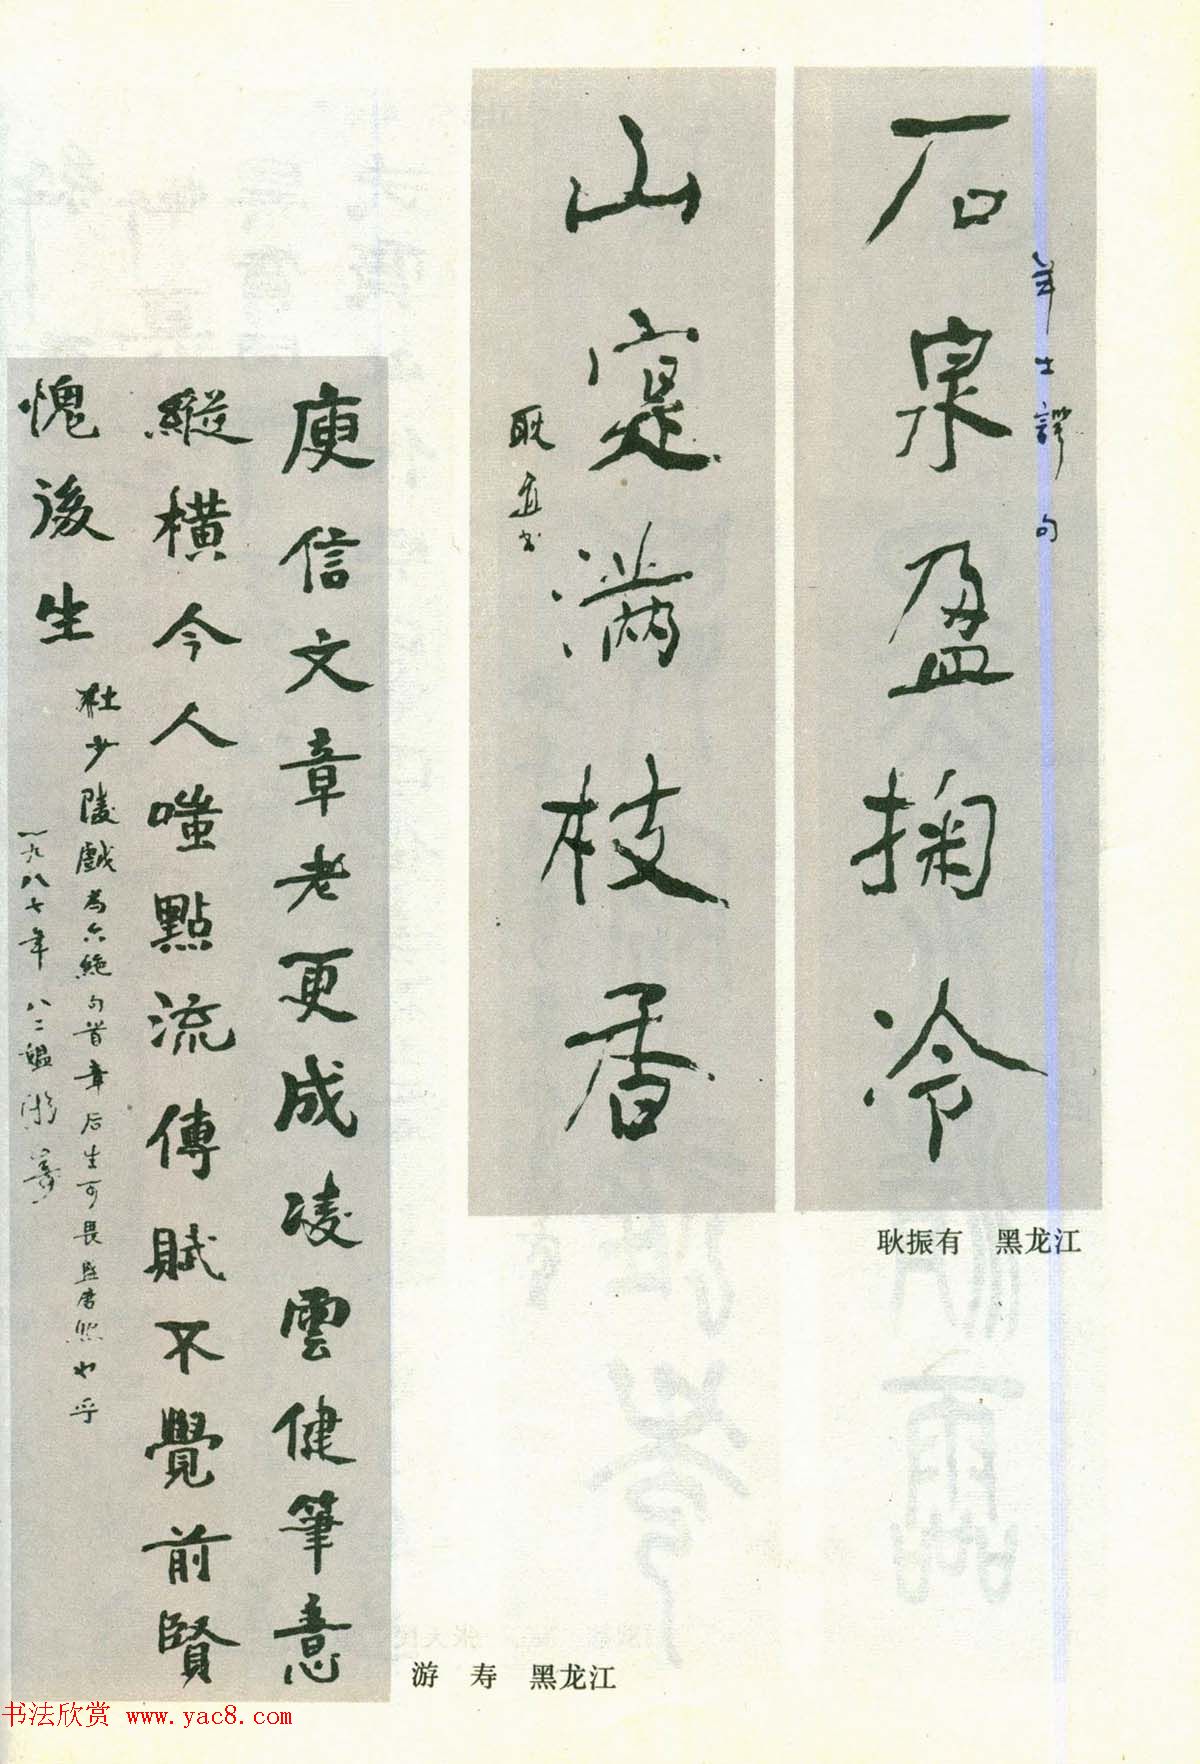 石泉盈掬冷
山寔满枝香
耿
书
句
耿振有　黑龙江
庾信文章老更成凌雲健筆意
縱橫今人嗤點流傳賦不覺前賢
愧後生
杜少陵戲为六絶句首章后生可畏
一九八七年八二
游　寿　黑龙江
书法欣赏 www.yac8.com